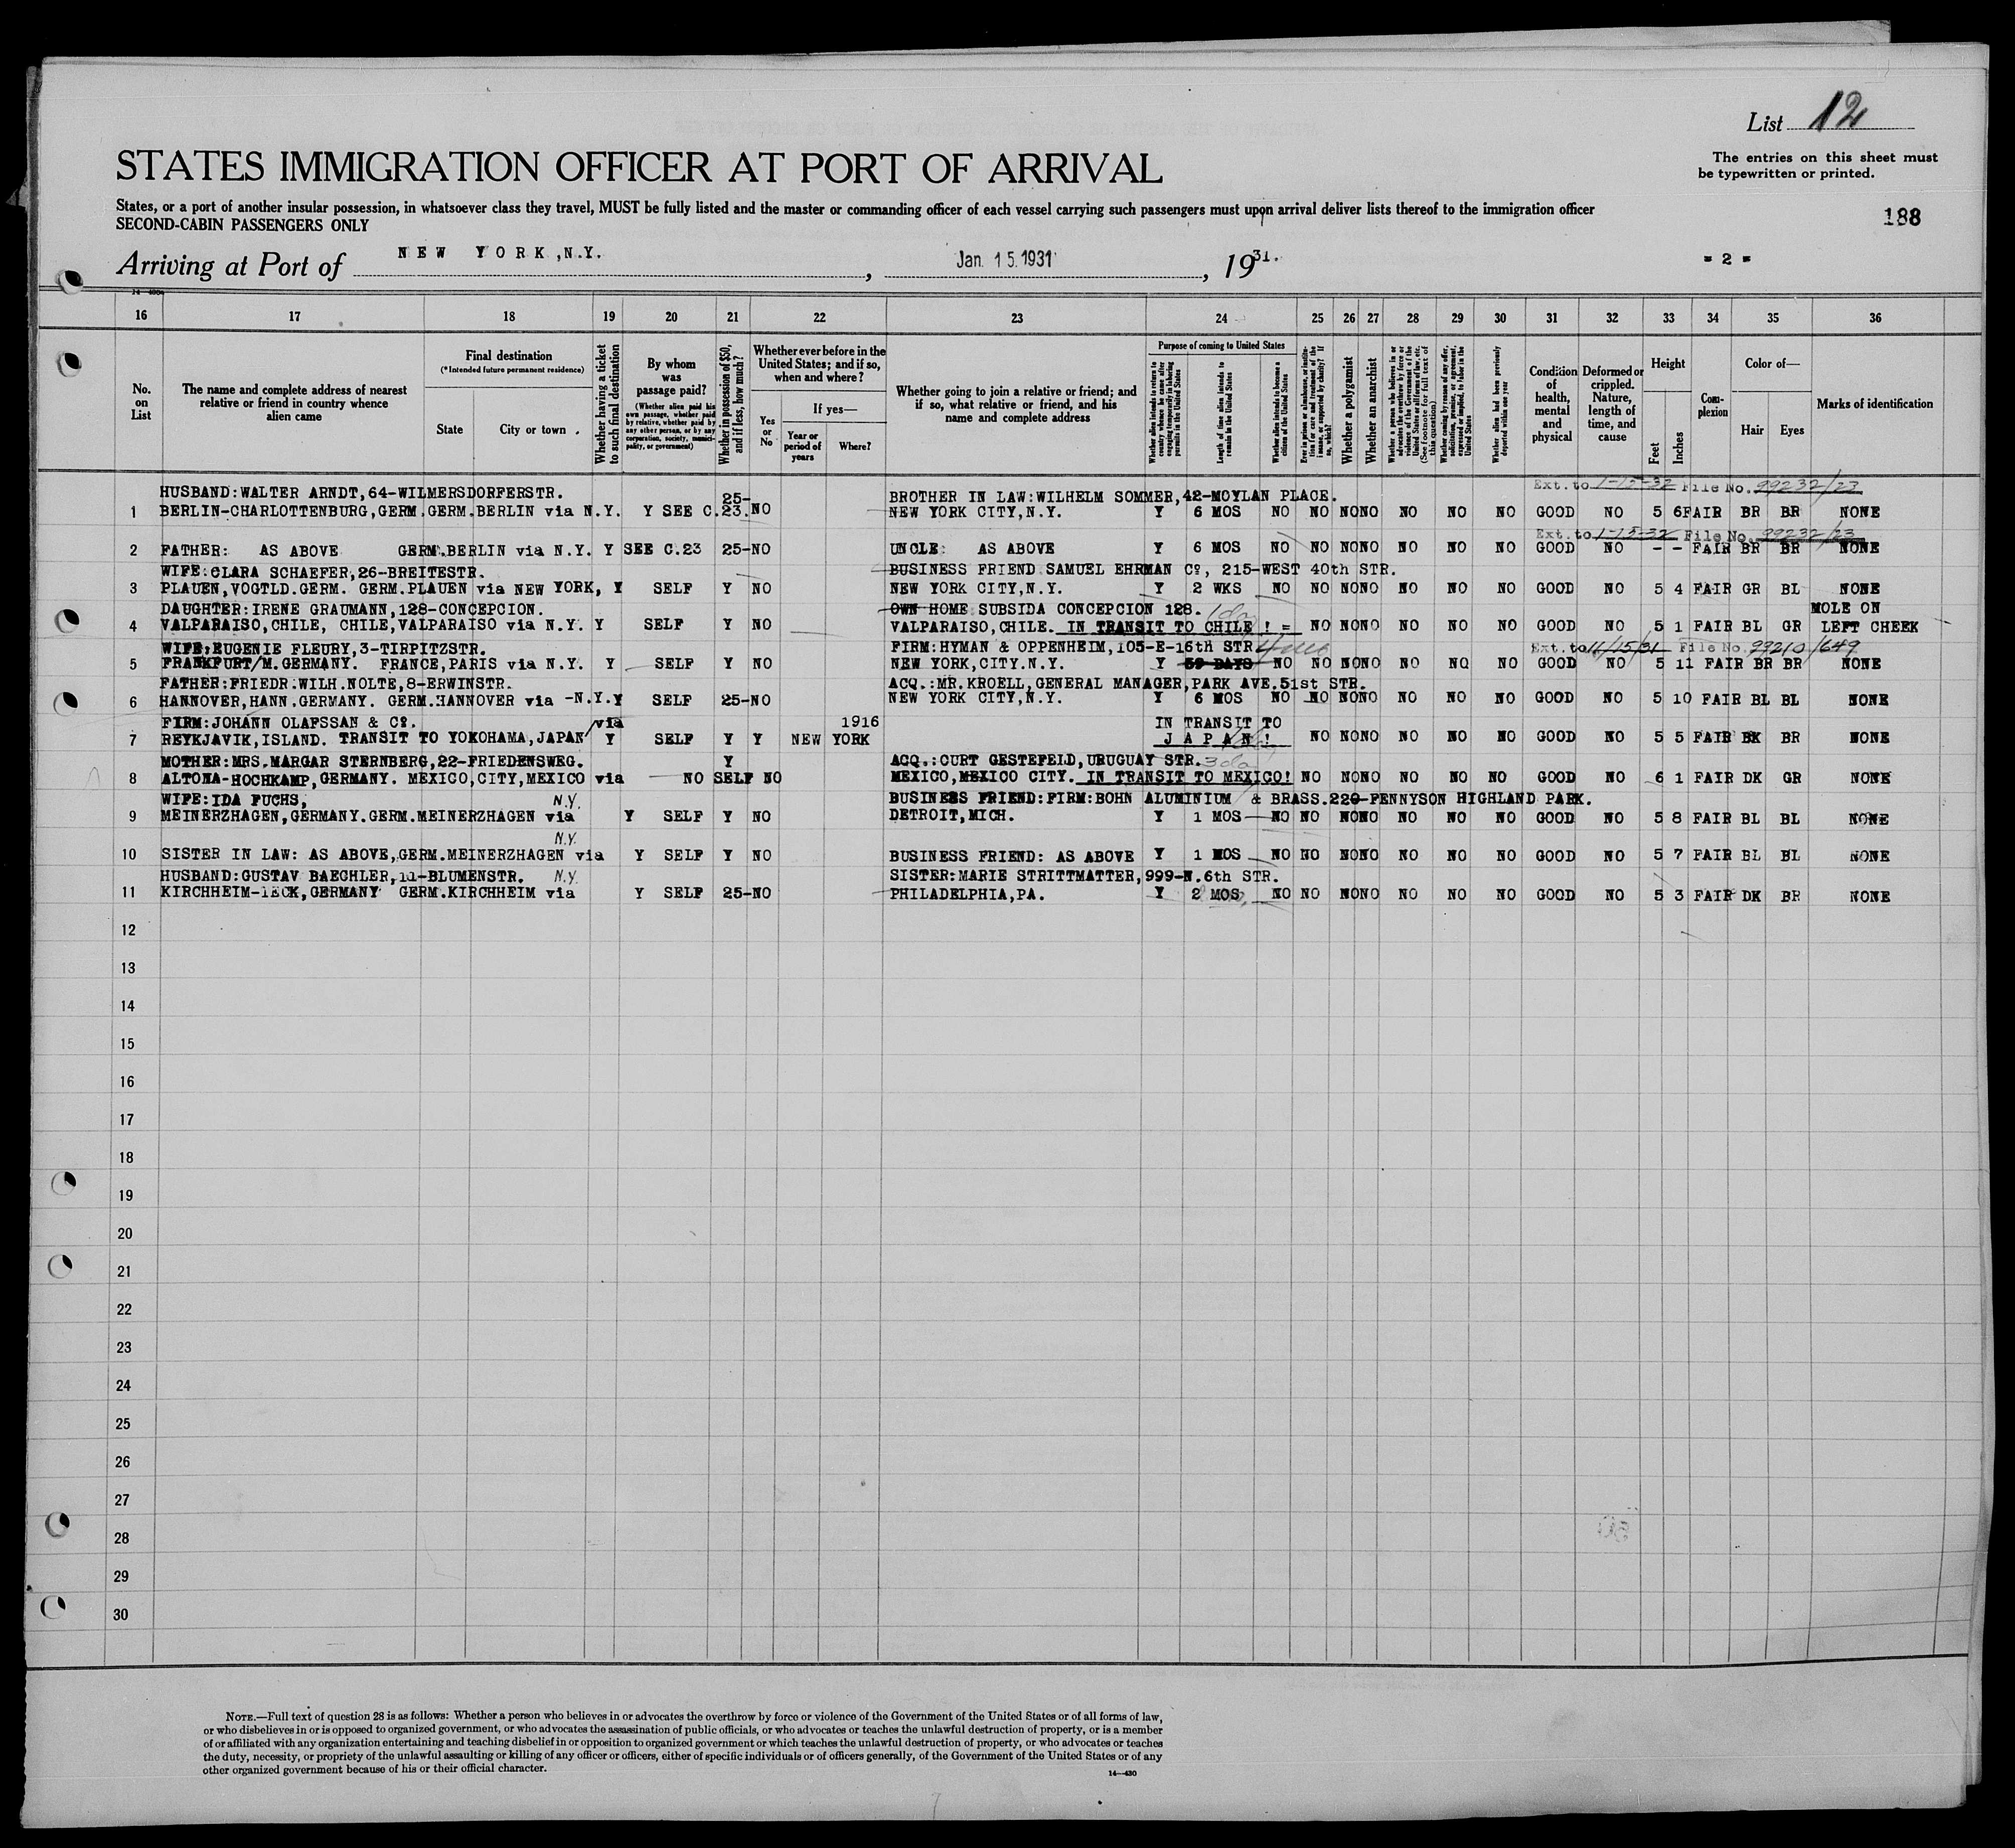 List 12
STATES IMMIGRATION OFFICER AT PORT OF ARRIVAL
The entries on this sheet must
be typewritten or printed.
States, or a port of another insular possession, in whatsoever class they travel, MUST be fully listed and the master or commanding officer of each vessel carrying such passengers must upon arrival deliver lists thereof to the immigration officer
SECOND-CABIN PASSENGERS ONLY
188
Arriving at Port of NEW YORK, N.Y. , Jan. 15. 1931 , 1931.
= 2 =
16 17 18 19 20 21 22 23 24 25 26 27 28 29 30 31 32 33 34 35 36
No. on List
The name and complete address of nearest relative or friend in country whence alien came
Final destination
(*Intended future permanent residence)
State
City or town
Whether having a ticket to such final destination
By whom was passage paid?
(Whether alien paid his own passage, whether paid by relative, whether paid by any other person, or by any corporation, society, municipality, or government)
Whether in possession of $50, and if less, how much?
Whether ever before in the United States; and if so, when and where?
Yes or No
If yes—
Year or period of years
Where?
Whether going to join a relative or friend; and if so, what relative or friend, and his name and complete address
Purpose of coming to United States
Whether alien intends to return to country whence he came after engaging temporarily in laboring pursuits in the United States
Length of time alien intends to remain in the United States
Whether alien intends to become a citizen of the United States
Ever in prison or almshouse, or institution for care and treatment of the insane, or supported by charity? If so, which?
Whether a polygamist
Whether an anarchist
Whether a person who believes in or advocates the overthrow by force or violence of the Government of the United States or all forms of law, etc. (See footnote for full text of this question)
Whether coming by reason of any offer, solicitation, promise, or agreement, expressed or implied, to labor in the United States
Whether alien had been previously deported within one year
Condition of health, mental and physical
Deformed or crippled. Nature, length of time, and cause
Height
Feet
Inches
Complexion
Color of—
Hair
Eyes
Marks of identification
HUSBAND:WALTER ARNDT,64-WILMERSDORFERSTR. 25- BROTHER IN LAW:WILHELM SOMMER,42-MOYLAN PLACE. Ext. to 1-15-32 File No. 99232/23
1 BERLIN-CHARLOTTENBURG,GERM.GERM.BERLIN via N.Y. Y SEE C.23. NO NEW YORK CITY,N.Y. Y 6 MOS NO NO NO NO NO NO NO GOOD NO 5 6 FAIR BR BR NONE
Ext. to 1-15-32 File No. 99232/23
2 FATHER: AS ABOVE GERM.BERLIN via N.Y. Y SEE C.23 25-NO UNCLE: AS ABOVE Y 6 MOS NO NO NO NO NO NO NO GOOD NO - - FAIR BR BR NONE
WIFE:CLARA SCHAEFER,26-BREITESTR. BUSINESS FRIEND SAMUEL EHRMAN Cº, 215-WEST 40th STR.
3 PLAUEN,VOGTLD.GERM. GERM.PLAUEN via NEW YORK, Y SELF Y NO NEW YORK CITY,N.Y. Y 2 WKS NO NO NO NO NO NO NO GOOD NO 5 4 FAIR GR BL NONE
DAUGHTER:IRENE GRAUMANN,128-CONCEPCION. OWN HOME SUBSIDA CONCEPCION 128. MOLE ON
4 VALPARAISO,CHILE, CHILE,VALPARAISO via N.Y. Y SELF Y NO VALPARAISO,CHILE. IN TRANSIT TO CHILE ! = NO NO NO NO NO NO GOOD NO 5 1 FAIR BL GR LEFT CHEEK
WIFE:EUGENIE FLEURY,3-TIRPITZSTR. FIRM:HYMAN & OPPENHEIM,105-E-16th STR Ext. to 11/15/31 File No. 99210/649
5 FRANKFURT/M.GERMANY. FRANCE,PARIS via N.Y. Y SELF Y NO NEW YORK,CITY.N.Y. Y DAYS NO NO NO NO NO NO NO GOOD NO 5 11 FAIR BR BR NONE
FATHER:FRIEDR.WILH.NOLTE,8-ERWINSTR. ACQ.:MR.KROELL,GENERAL MANAGER,PARK AVE.51st STR.
6 HANNOVER,HANN.GERMANY. GERM.HANNOVER via -N.Y. Y SELF 25-NO NEW YORK CITY,N.Y. Y 6 MOS NO NO NO NO NO NO NO GOOD NO 5 10 FAIR BL BL NONE
FIRM:JOHANN OLAFSSAN & Cº. via 1916 IN TRANSIT TO
7 REYKJAVIK,ISLAND. TRANSIT TO YOKOHAMA,JAPAN Y SELF Y Y NEW YORK JAPAN! NO NO NO NO NO NO GOOD NO 5 5 FAIR BK BR NONE
MOTHER:MRS.MARGAR STERNBERG,22-FRIEDENSWEG. Y ACQ.:CURT GESTEFELD,URUGUAY STR.
8 ALTONA-HOCHKAMP,GERMANY. MEXICO,CITY,MEXICO via NO SELF NO MEXICO,MEXICO CITY. IN TRANSIT TO MEXICO! NO NO NO NO NO NO GOOD NO 6 1 FAIR DK GR NONE
WIFE:IDA FUCHS, N.Y. BUSINESS FRIEND:FIRM:BOHN ALUMINIUM & BRASS.220-PENNYSON HIGHLAND PARK.
9 MEINERZHAGEN,GERMANY.GERM.MEINERZHAGEN via Y SELF Y NO DETROIT,MICH. Y 1 MOS NO NO NO NO NO NO NO GOOD NO 5 8 FAIR BL BL NONE
N.Y.
10 SISTER IN LAW: AS ABOVE,GERM.MEINERZHAGEN via Y SELF Y NO BUSINESS FRIEND: AS ABOVE Y 1 MOS NO NO NO NO NO NO NO GOOD NO 5 7 FAIR BL BL NONE
HUSBAND:GUSTAV BAECHLER,11-BLUMENSTR. N.Y. SISTER:MARIE STRITTMATTER,999-N.6th STR.
11 KIRCHHEIM-TECK,GERMANY GERM.KIRCHHEIM via Y SELF 25-NO PHILADELPHIA,PA. Y 2 MOS NO NO NO NO NO NO NO GOOD NO 5 3 FAIR DK BR NONE
12
13
14
15
16
17
18
19
20
21
22
23
24
25
26
27
28
29
30
NOTE.—Full text of question 28 is as follows: Whether a person who believes in or advocates the overthrow by force or violence of the Government of the United States or of all forms of law,
or who disbelieves in or is opposed to organized government, or who advocates the assassination of public officials, or who advocates or teaches the unlawful destruction of property, or is a member
of or affiliated with any organization entertaining and teaching disbelief in or opposition to organized government or which teaches the unlawful destruction of property, or who advocates or teaches
the duty, necessity, or propriety of the unlawful assaulting or killing of any officer or officers, either of specific individuals or of officers generally, of the Government of the United States or of any
other organized government because of his or their official character.
14—430